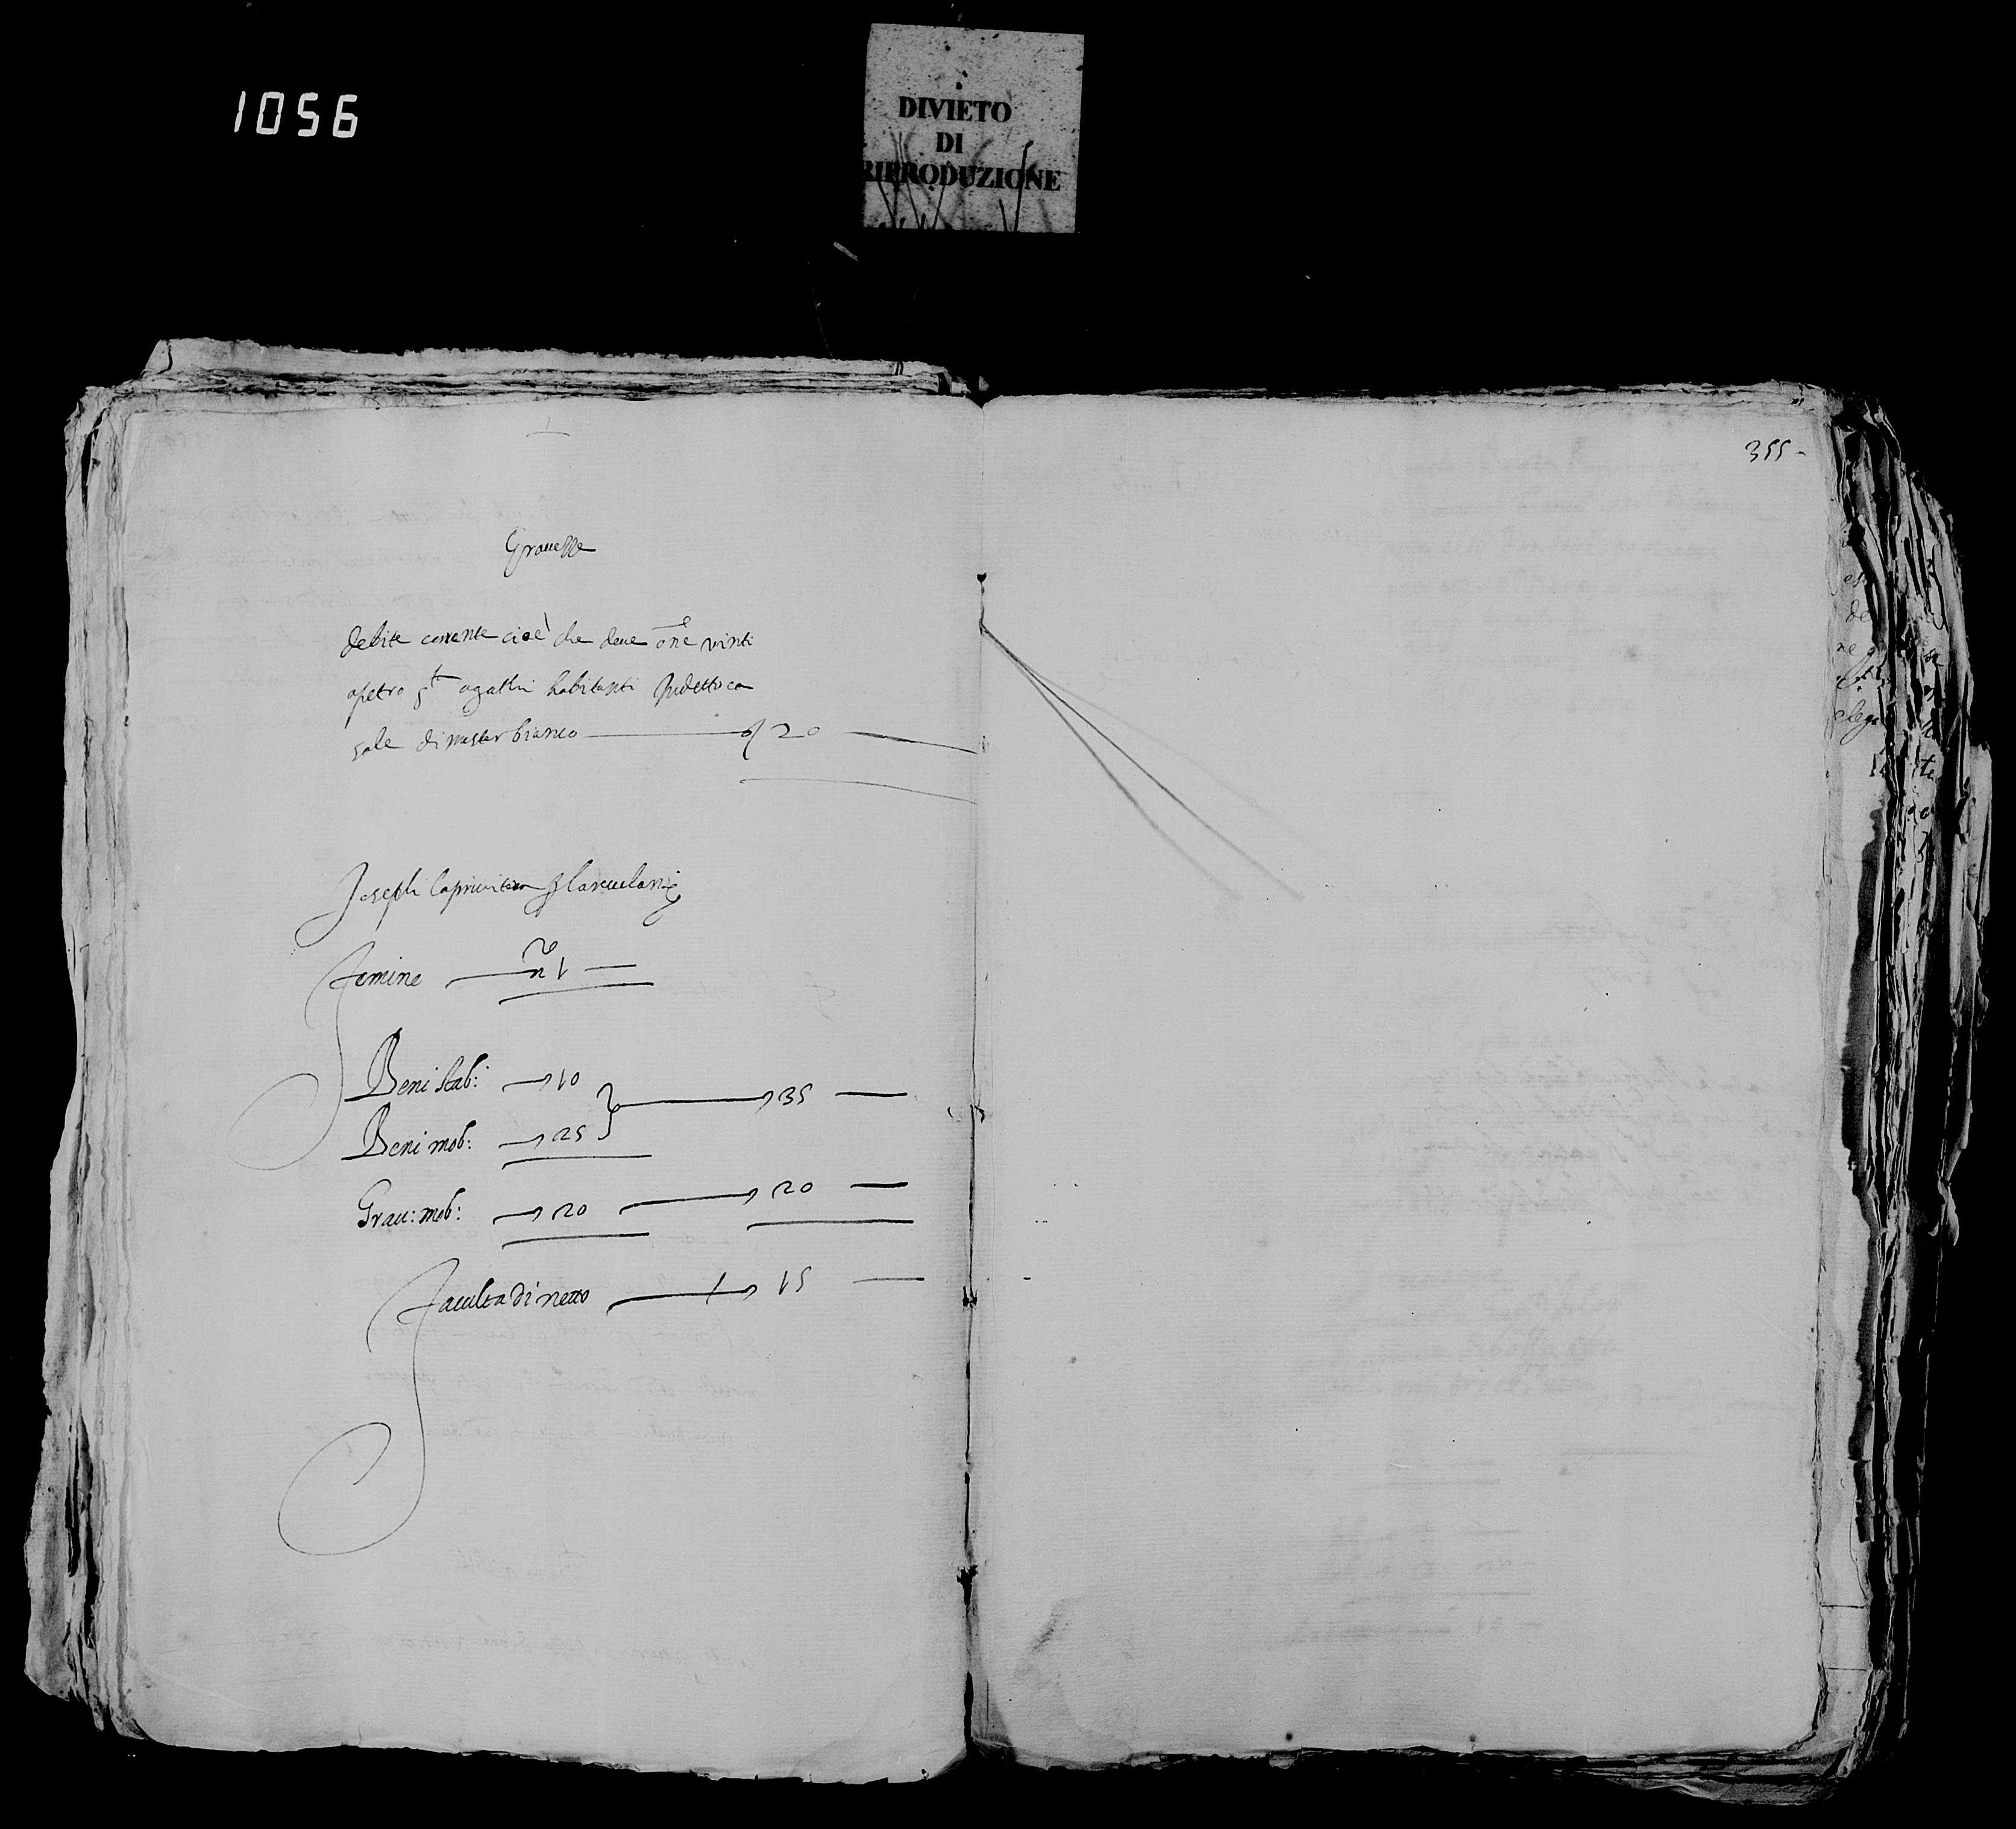 1056
DIVIETO
DI
RIPRODUZIONE
355-
Grauezze
debite corrente cioè che deue onze vinti
apetro agathi habitanti Indetto ca
sale di misterbianco 20
Joseph
Femine n 1
Beni stab: 10
35
Beni mob: 25
Grau: mob: 20 20
Faculta di netto 15